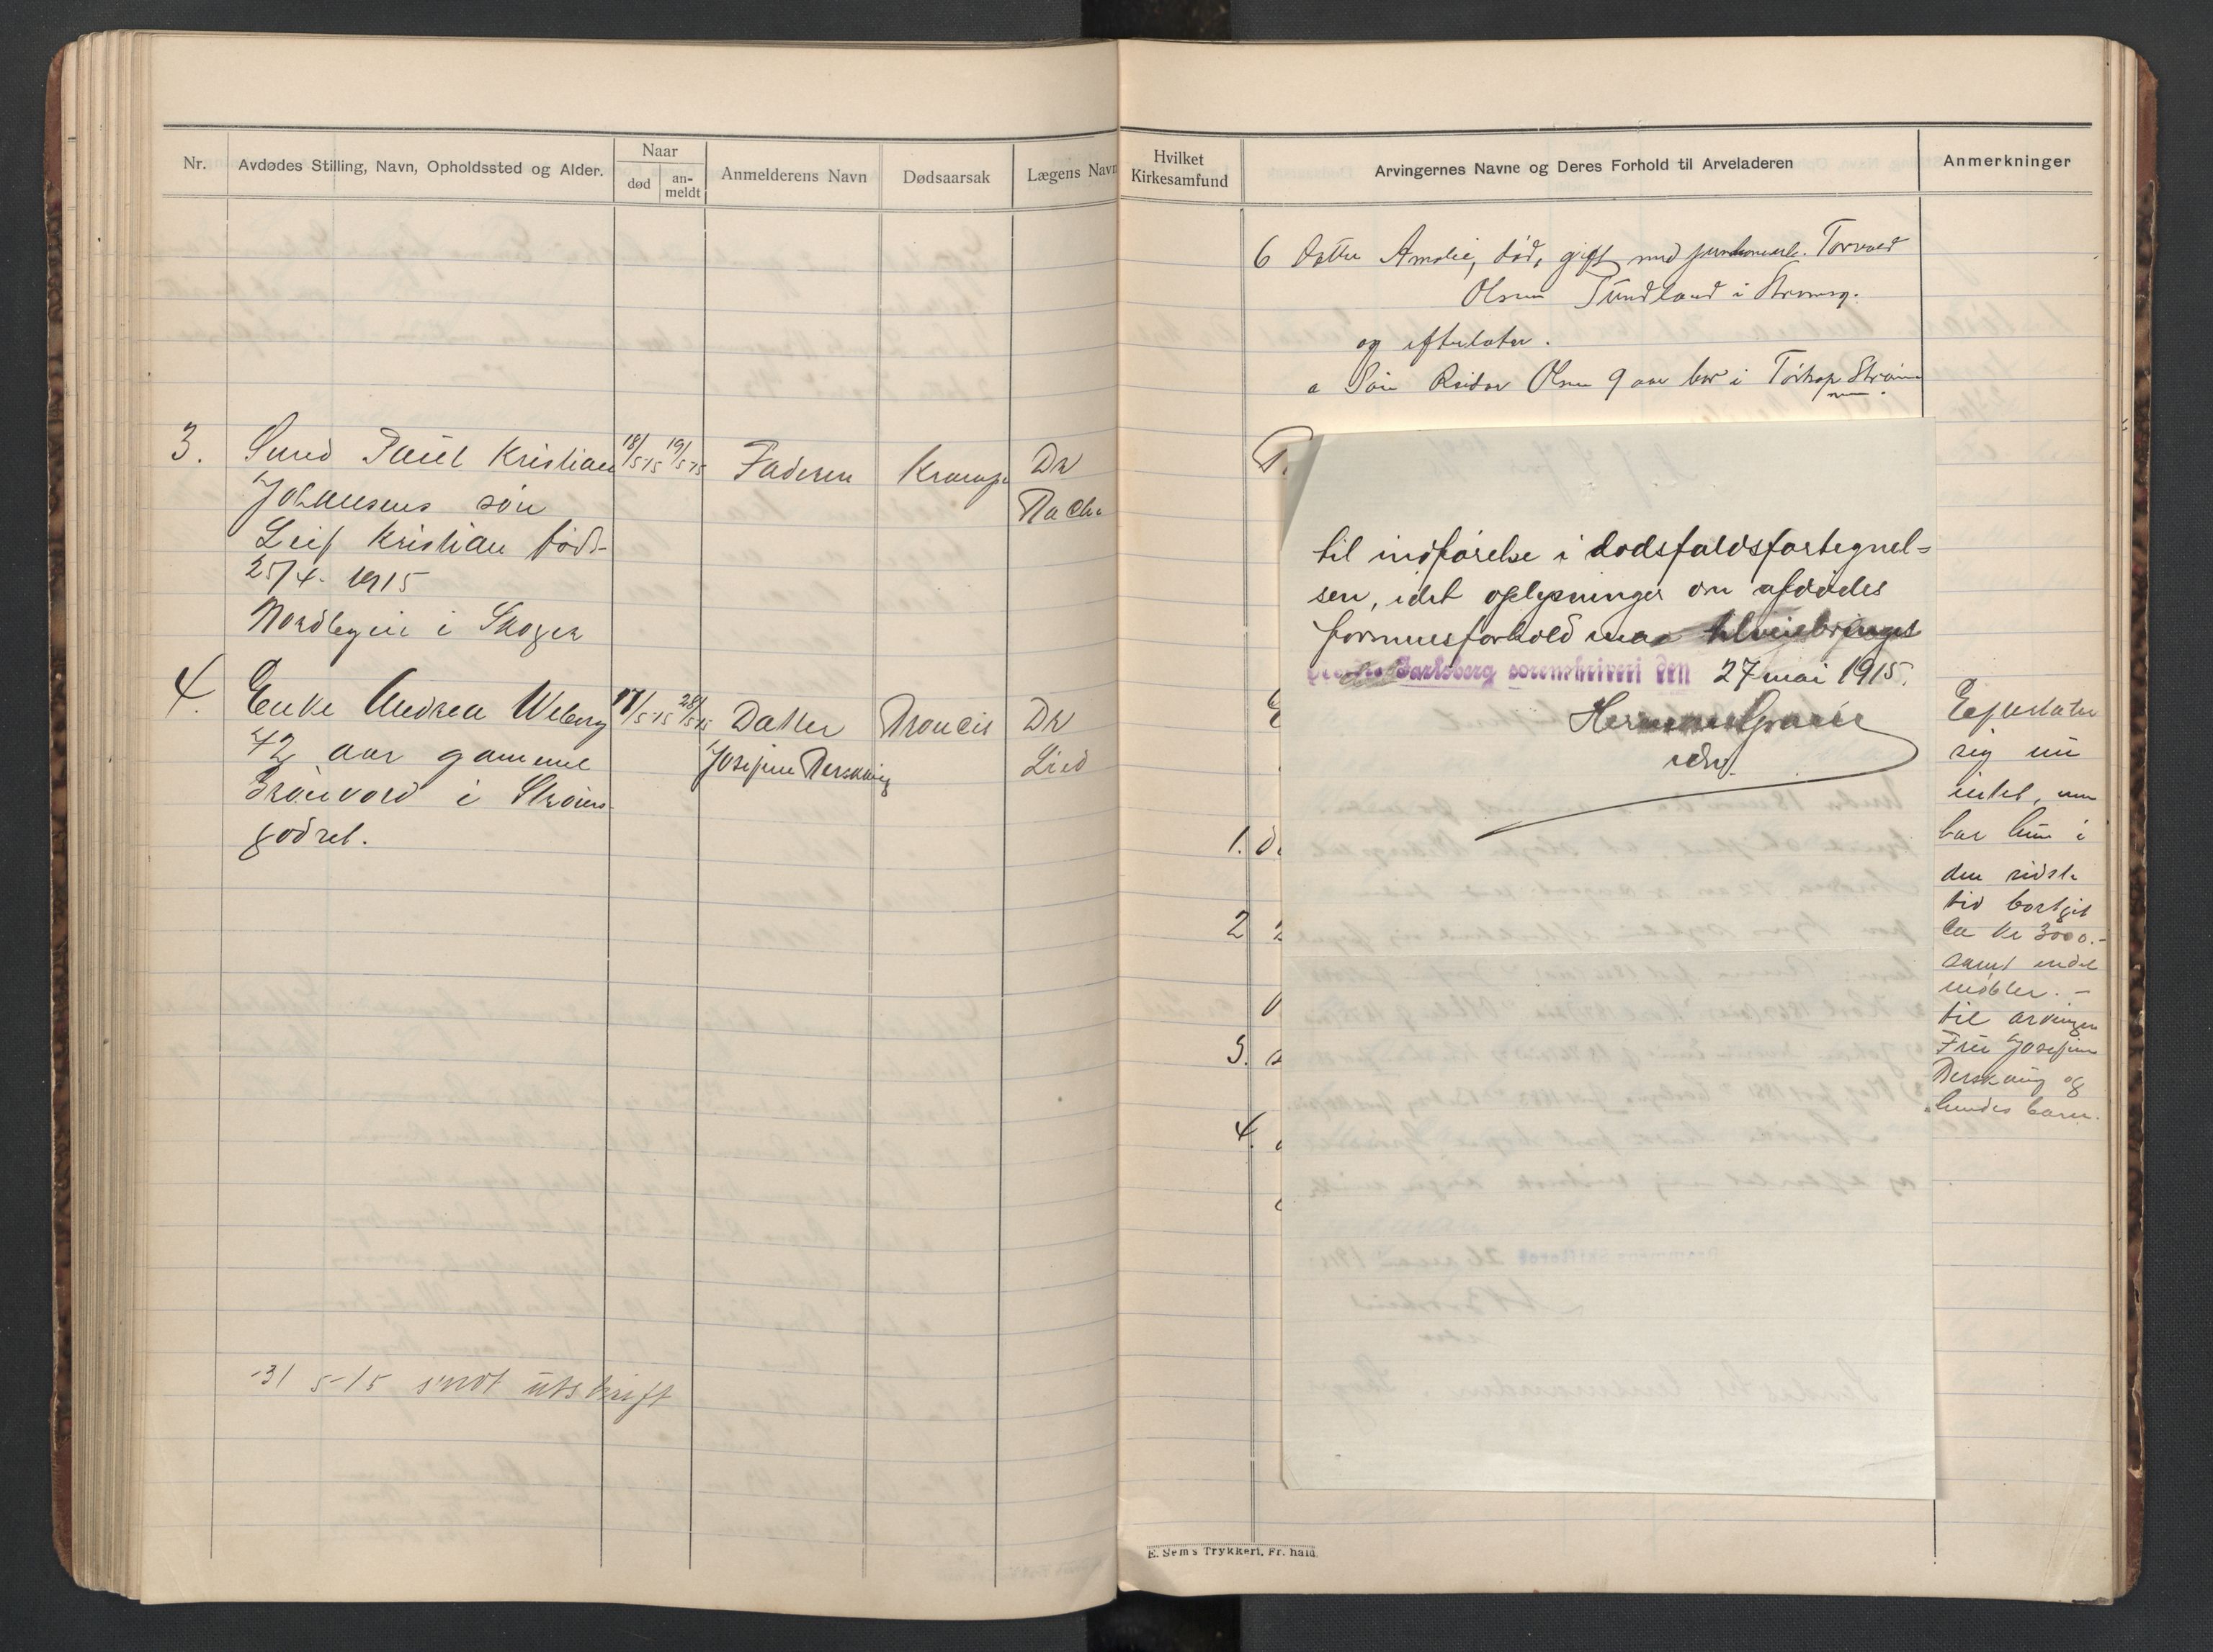 Nr.
Avdødes Stilling, Navn, Opholdssted og Alder.
Naar
død
an-
meldt
Anmelderens Navn
Dødsaarsak
Lægens Navn
3.
Paul Kristian
Johansens søn
Leif Kristian født
25/4- 1915
i Skoger
18/5-15
19/5-15
Faderen
Krampe
Dr
4.
Enke Andrea Wiberg
72 aar gammel
Grönvold i Strøms-
godset.
17/5-15
28/5-15
Datter
Josefine
Dr
Lied
31 5-15 sendt utskrift
Hvilket
Kirkesamfund
Arvingernes Navne og Deres Forhold til Arveladeren
Anmerkninger
6 Datter Amalie, död, gift med Torvald
Olsen Sundland i Strømsg.
og efterlater.
a Søn Reidar Olsen 9 aar bor i
til indførelse i dødsfaldsfortegnel=
sen, idet oplysninger om afdødes
formuesforhold maa tilveiebringes
Jarlsberg sorenskriveri den 27 mai 1915.
1.
2
3.
4.
Efterlater
sig nu
intet, men
har hun i
den sidste
tid bortgit
ca kr 3000.-
samt endel
møbler. -
til arvingen
Fru Josefine
og
hendes barn.
E. Sem's Trykkeri, Fr.hald.